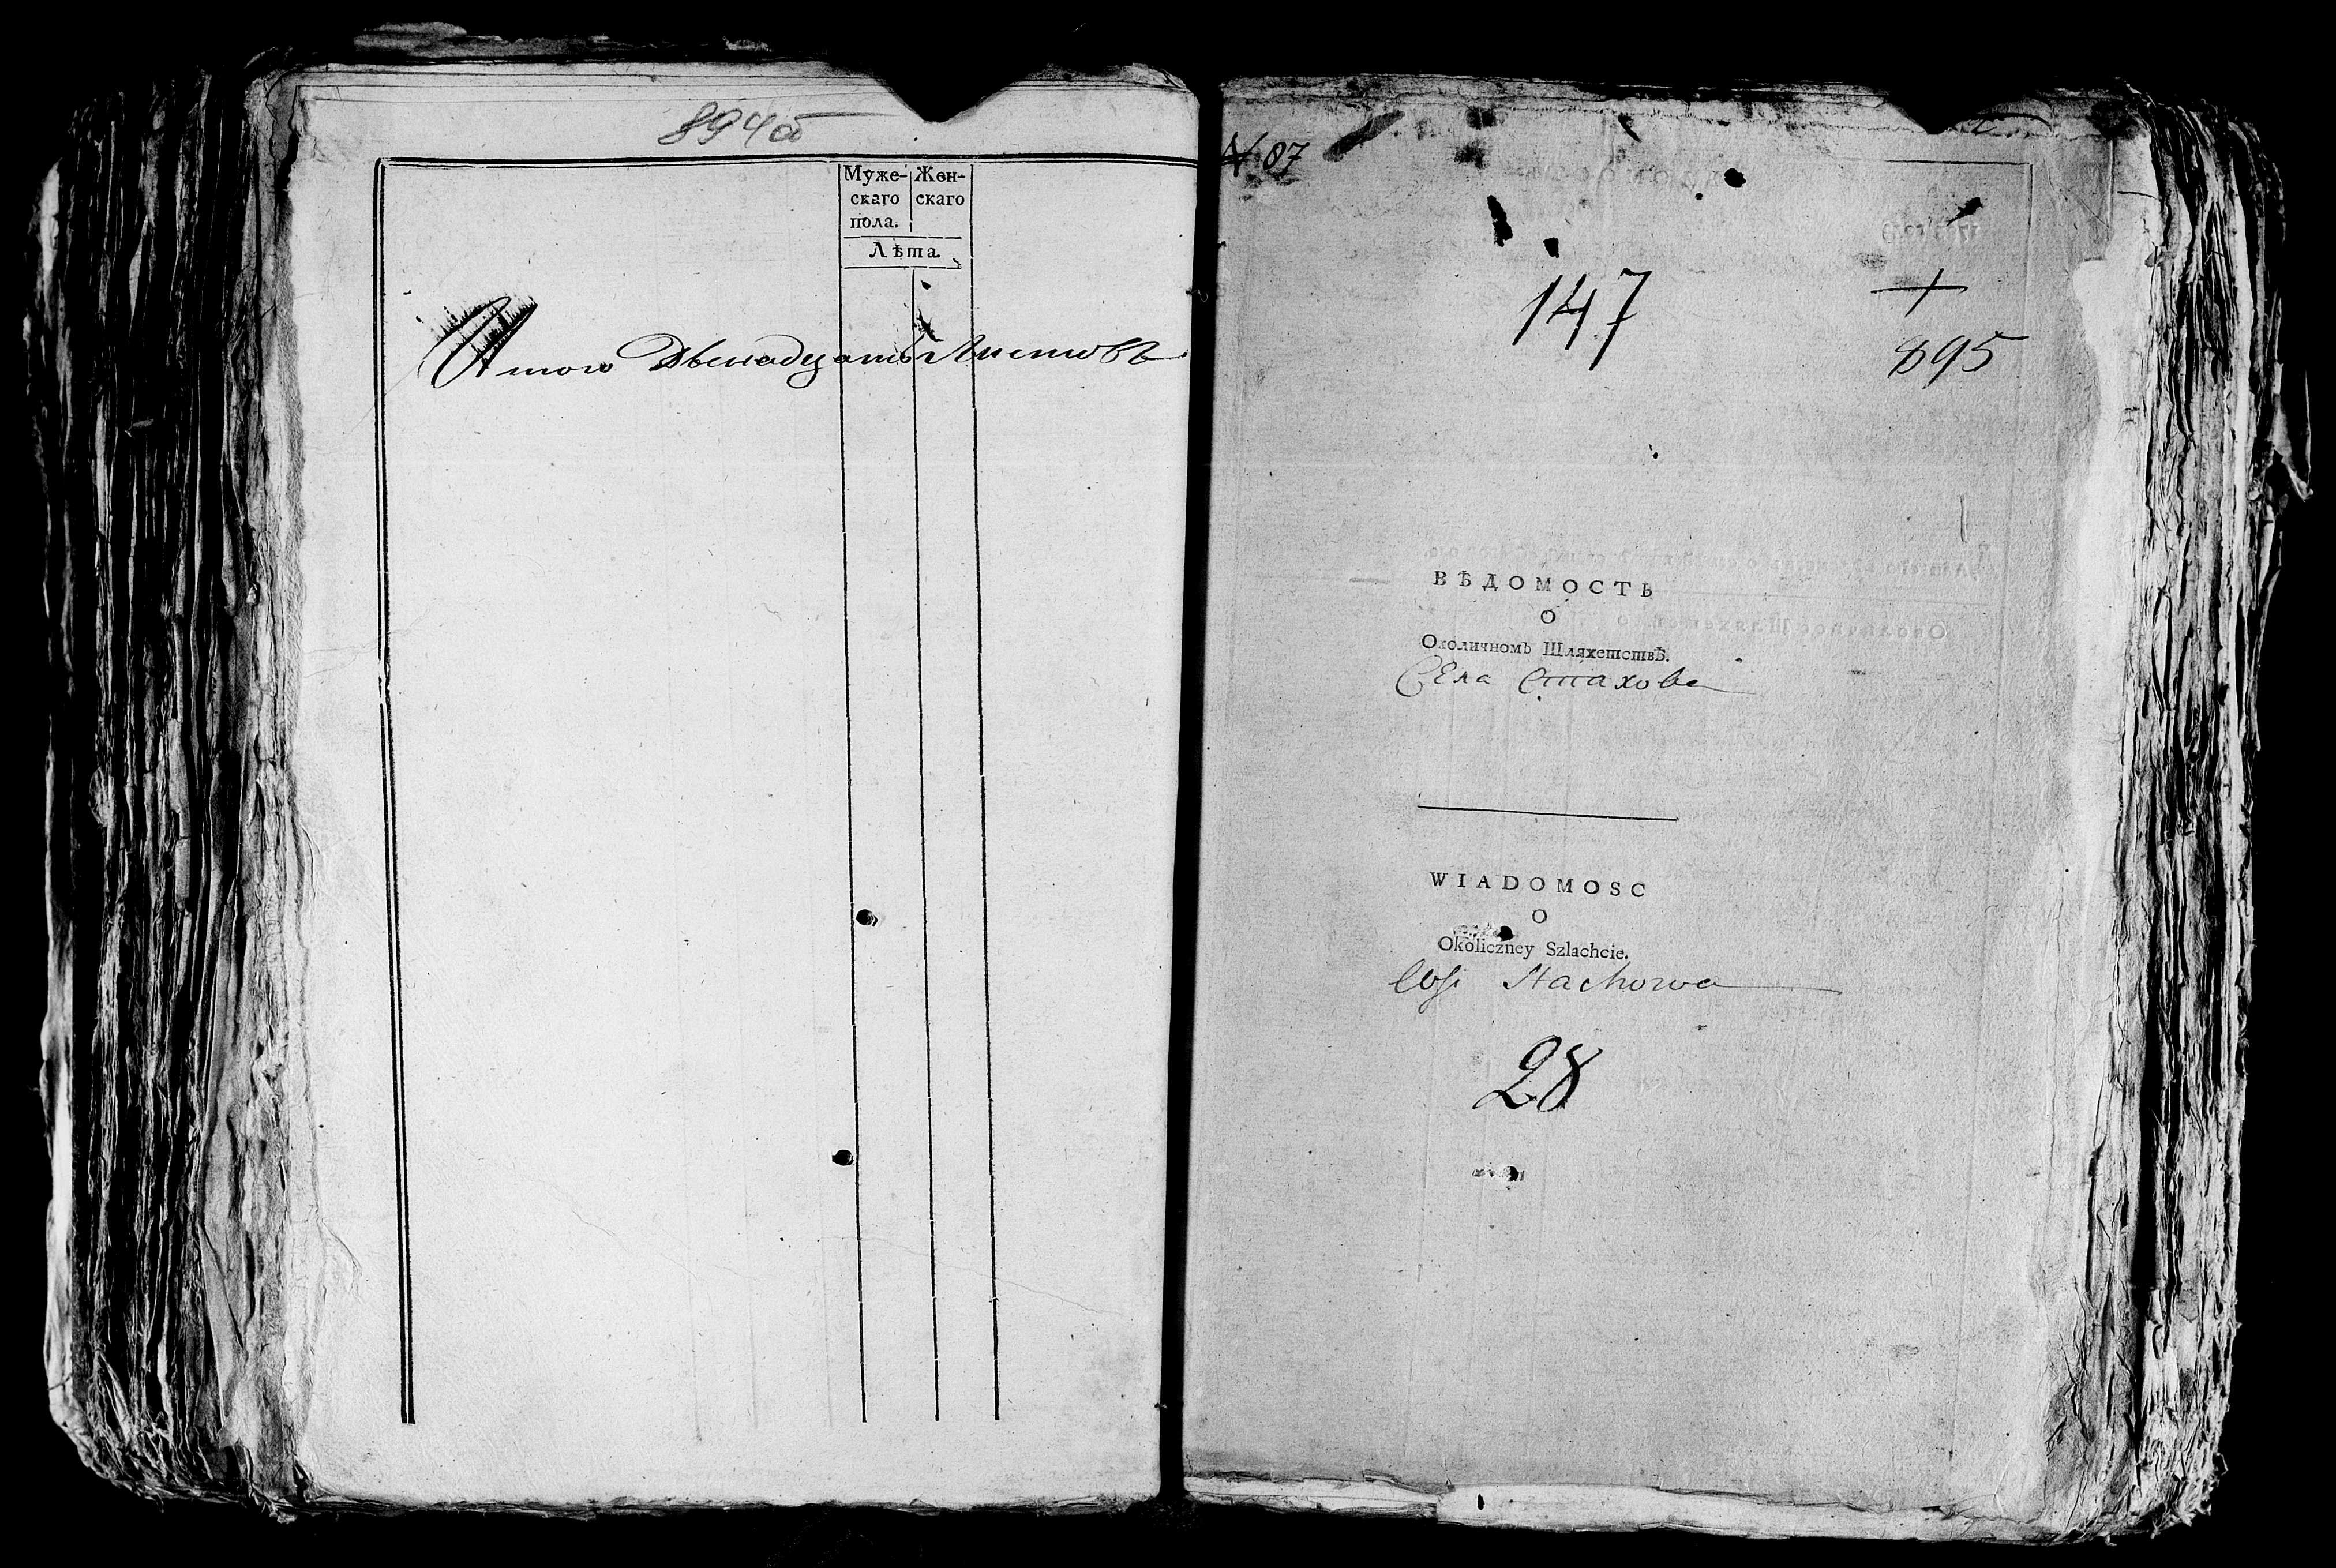 894а
Муже- Жен-
скаго скаго
пола.
Лѣта
Итого Двенадцать Листовъ
N 87
147
895
ВѢДОМОСТЬ
О
Околичномъ Шляхетствѣ.
Села Стахова
WIADOMOSC
O
Okoliczney Szlachcie.
Wsi Stachowa
28